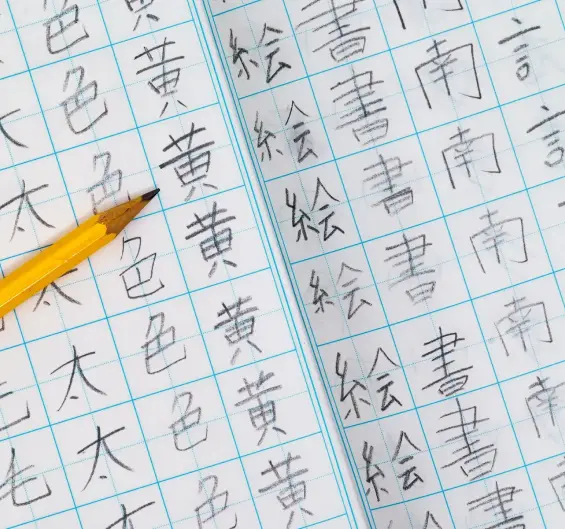 言言
南南南南南南
書書書書書書書
絵絵絵絵絵絵
黄黄黄黄黄黄黄
色色色色色色色
太太太太
毛毛